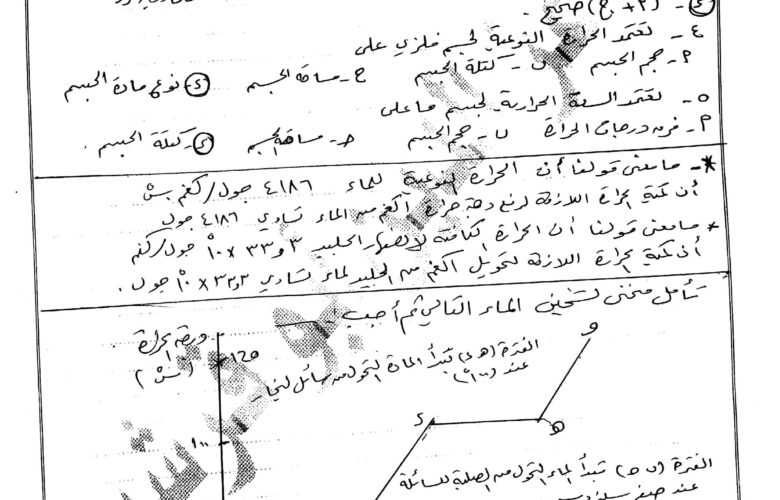 د - (أ + ج) صحيح.
٤ - تعتمد الحرارة النوعية لجسم فلزي على
أ - حجم الجسم ب - كتلة الجسم ج - مساحة الجسم د - نوع مادة الجسم
٥ - تعتمد السعة الحرارية لجسم ما على
أ - فرق درجات الحرارة ب - حجم الجسم ج - مساحة الجسم د - كتلة الجسم.
* - ما معنى قولنا أن الحرارة النوعية للماء ٤١٨٦ جول/كغم.س
أن كمية الحرارة اللازمة لرفع درجة حرارة ١ كغم من الماء تساوي ٤١٨٦ جول
* ما معنى قولنا أن الحرارة الكامنة لانصهار الجليد ٣,٣٣ × ١٠ جول/كغم
أن كمية الحرارة اللازمة لتحويل ١ كغم من الجليد لماء تساوي ٣,٣٣ × ١٠ جول.
تأمل منحنى تسخين الماء التالي ثم أجب:
درجة الحرارة
(س)
١٢٥
١٠٠
الفترة (د هـ) تبدأ المادة التحول من سائل لبخار
عند (١٠٠)
و
د
هـ
الفترة (ب ج) تبدأ الماء التحول من الصلبة للسائلة
عند صفر